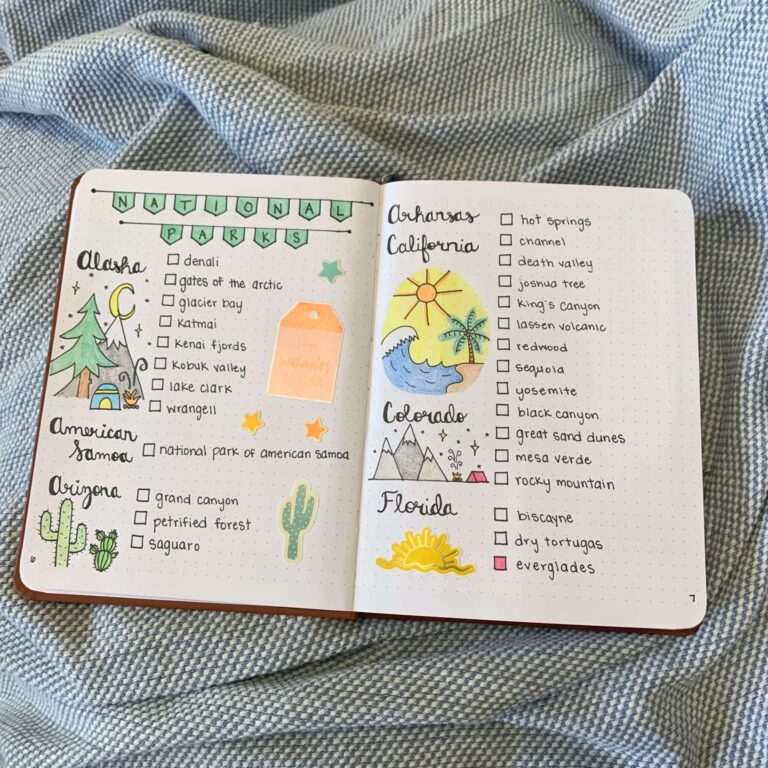 NATIONAL
PARKS
Alaska
denali
gates of the arctic
glacier bay
katmai
kenai fjords
kobuk valley
lake clark
wrangell
American
Samoa
national park of american samoa
Arizona
grand canyon
petrified forest
saguaro
6
Arkansas
hot springs
California
channel
death valley
joshua tree
king's canyon
lassen volcanic
redwood
sequoia
yosemite
Colorado
black canyon
great sand dunes
mesa verde
rocky mountain
Florida
biscayne
dry tortugas
everglades
7